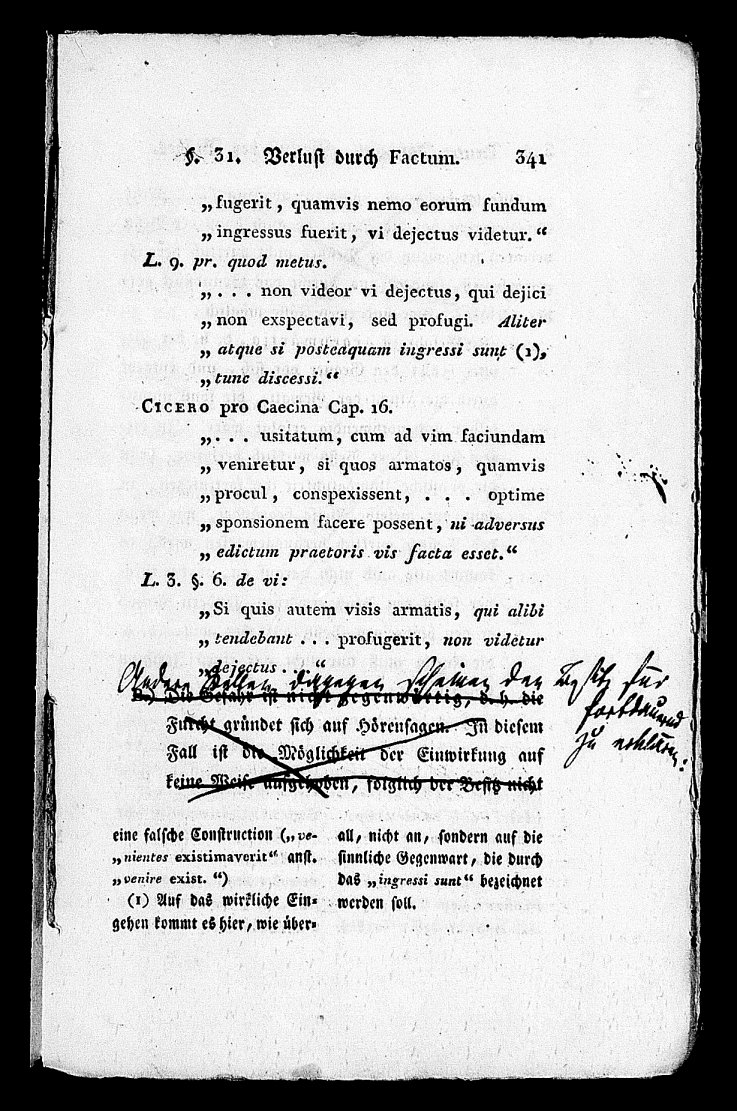 §. 31. Verlust durch Factum. 341
„fugerit, quamvis nemo eorum fundum
„ingressus fuerit, vi dejectus videtur.“
L. 9. pr. quod metus.
„. . . non videor vi dejectus, qui dejici
„non exspectavi, sed profugi. Aliter
„atque si posteaquam ingressi sunt (1),
„tunc discessi.“
CICERO pro Caecina Cap. 16.
„. . . usitatum, cum ad vim faciundam
„veniretur, si quos armatos, quamvis
„procul, conspexissent, . . . optime
„sponsionem facere possent, ni adversus
„edictum praetoris vis facta esset.“
L. 3. §. 6. de vi:
„Si quis autem visis armatis, qui alibi
„tendebant . . . profugerit, non videtur
„dejectus . . . “
Andere Stellen dagegen scheinen den Besitz für
fortdauernd
zu erklären:
Die Gefahr ist nicht gegenwärtig, d. h. die
Furcht gründet sich auf Hörensagen. In diesem
Fall ist die Möglichkeit der Einwirkung auf
keine Weise aufgehoben, folglich der Besitz nicht
eine falsche Construction („ve-
„nientes existimaverit“ anst.
„venire exist. “)
(1) Auf das wirkliche Ein-
gehen kommt es hier, wie über-
all, nicht an, sondern auf die
sinnliche Gegenwart, die durch
das „ingressi sunt“ bezeichnet
werden soll.